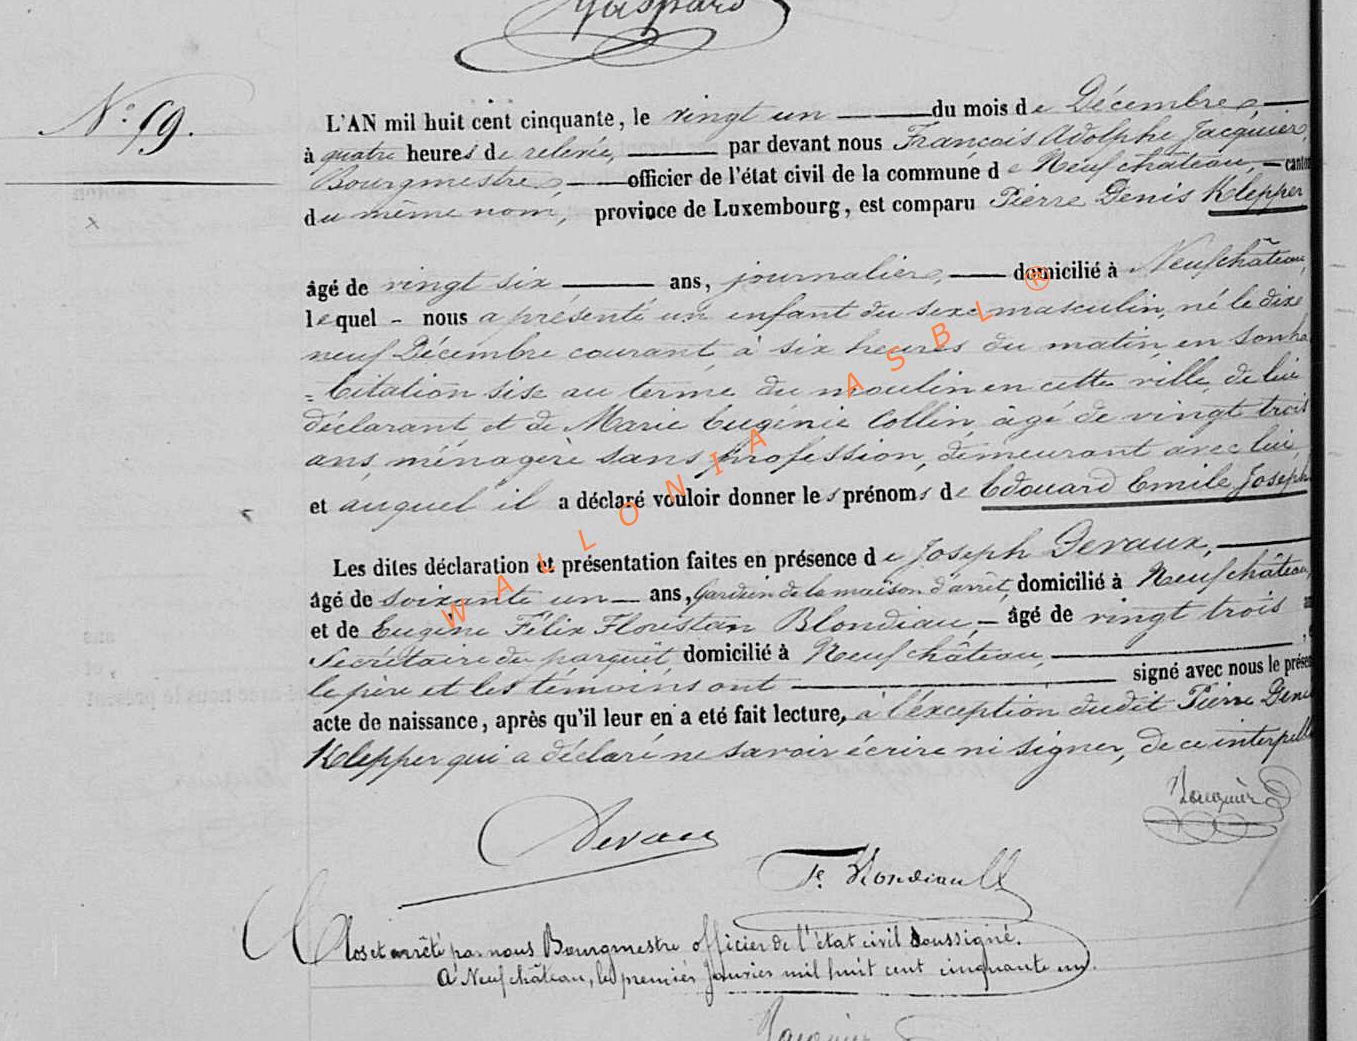 Gaspard
N.° 59.
L'AN mil huit cent cinquante, le vingt un du mois de Décembre,
à quatre heures de relevée, par devant nous François Adolphe Jacquier,
Bourgmestre officier de l'état civil de la commune de Neufchâteau, canton
du même nom, province de Luxembourg, est comparu Pierre Denis Klepper
âgé de vingt six ans, journalier, domicilié à Neufchâteau,
lequel - nous a présenté un enfant du sexe masculin, né le dixe
neuf Décembre courant, à six heures du matin, en son ha
= bitation sise au terme du moulin en cette ville, de lui
déclarant et de Marie Eugénie Collin, âgé de vingt trois
ans, ménagère sans profession, demeurant avec lui,
et auquel il a déclaré vouloir donner les prénoms de Edouard Emile Joseph
Les dites déclaration et présentation faites en présence de Joseph Devaux,
âgé de soixante un ans, Gardien de la maison d'arrêt, domicilié à Neufchâteau,
et de Eugène Félix Floristan Blondiau, âgé de vingt trois
Secrétaire du parquet domicilié à Neufchâteau,
le père et les témoins ont signé avec nous le présent
acte de naissance, après qu'il leur en a eté fait lecture, à l'exception dudit Pierre Denis
Klepper qui a déclaré ne savoir écrire ni signer, de ce interpellé
Jacquier
Devaux
Clos et arrêté par nous Bourgmestre officier de l'état civil soussigné.
A Neufchâteau, le premier Janvier mil huit cent cinquante un.
Jacquier
WALLONIA ASBL ®